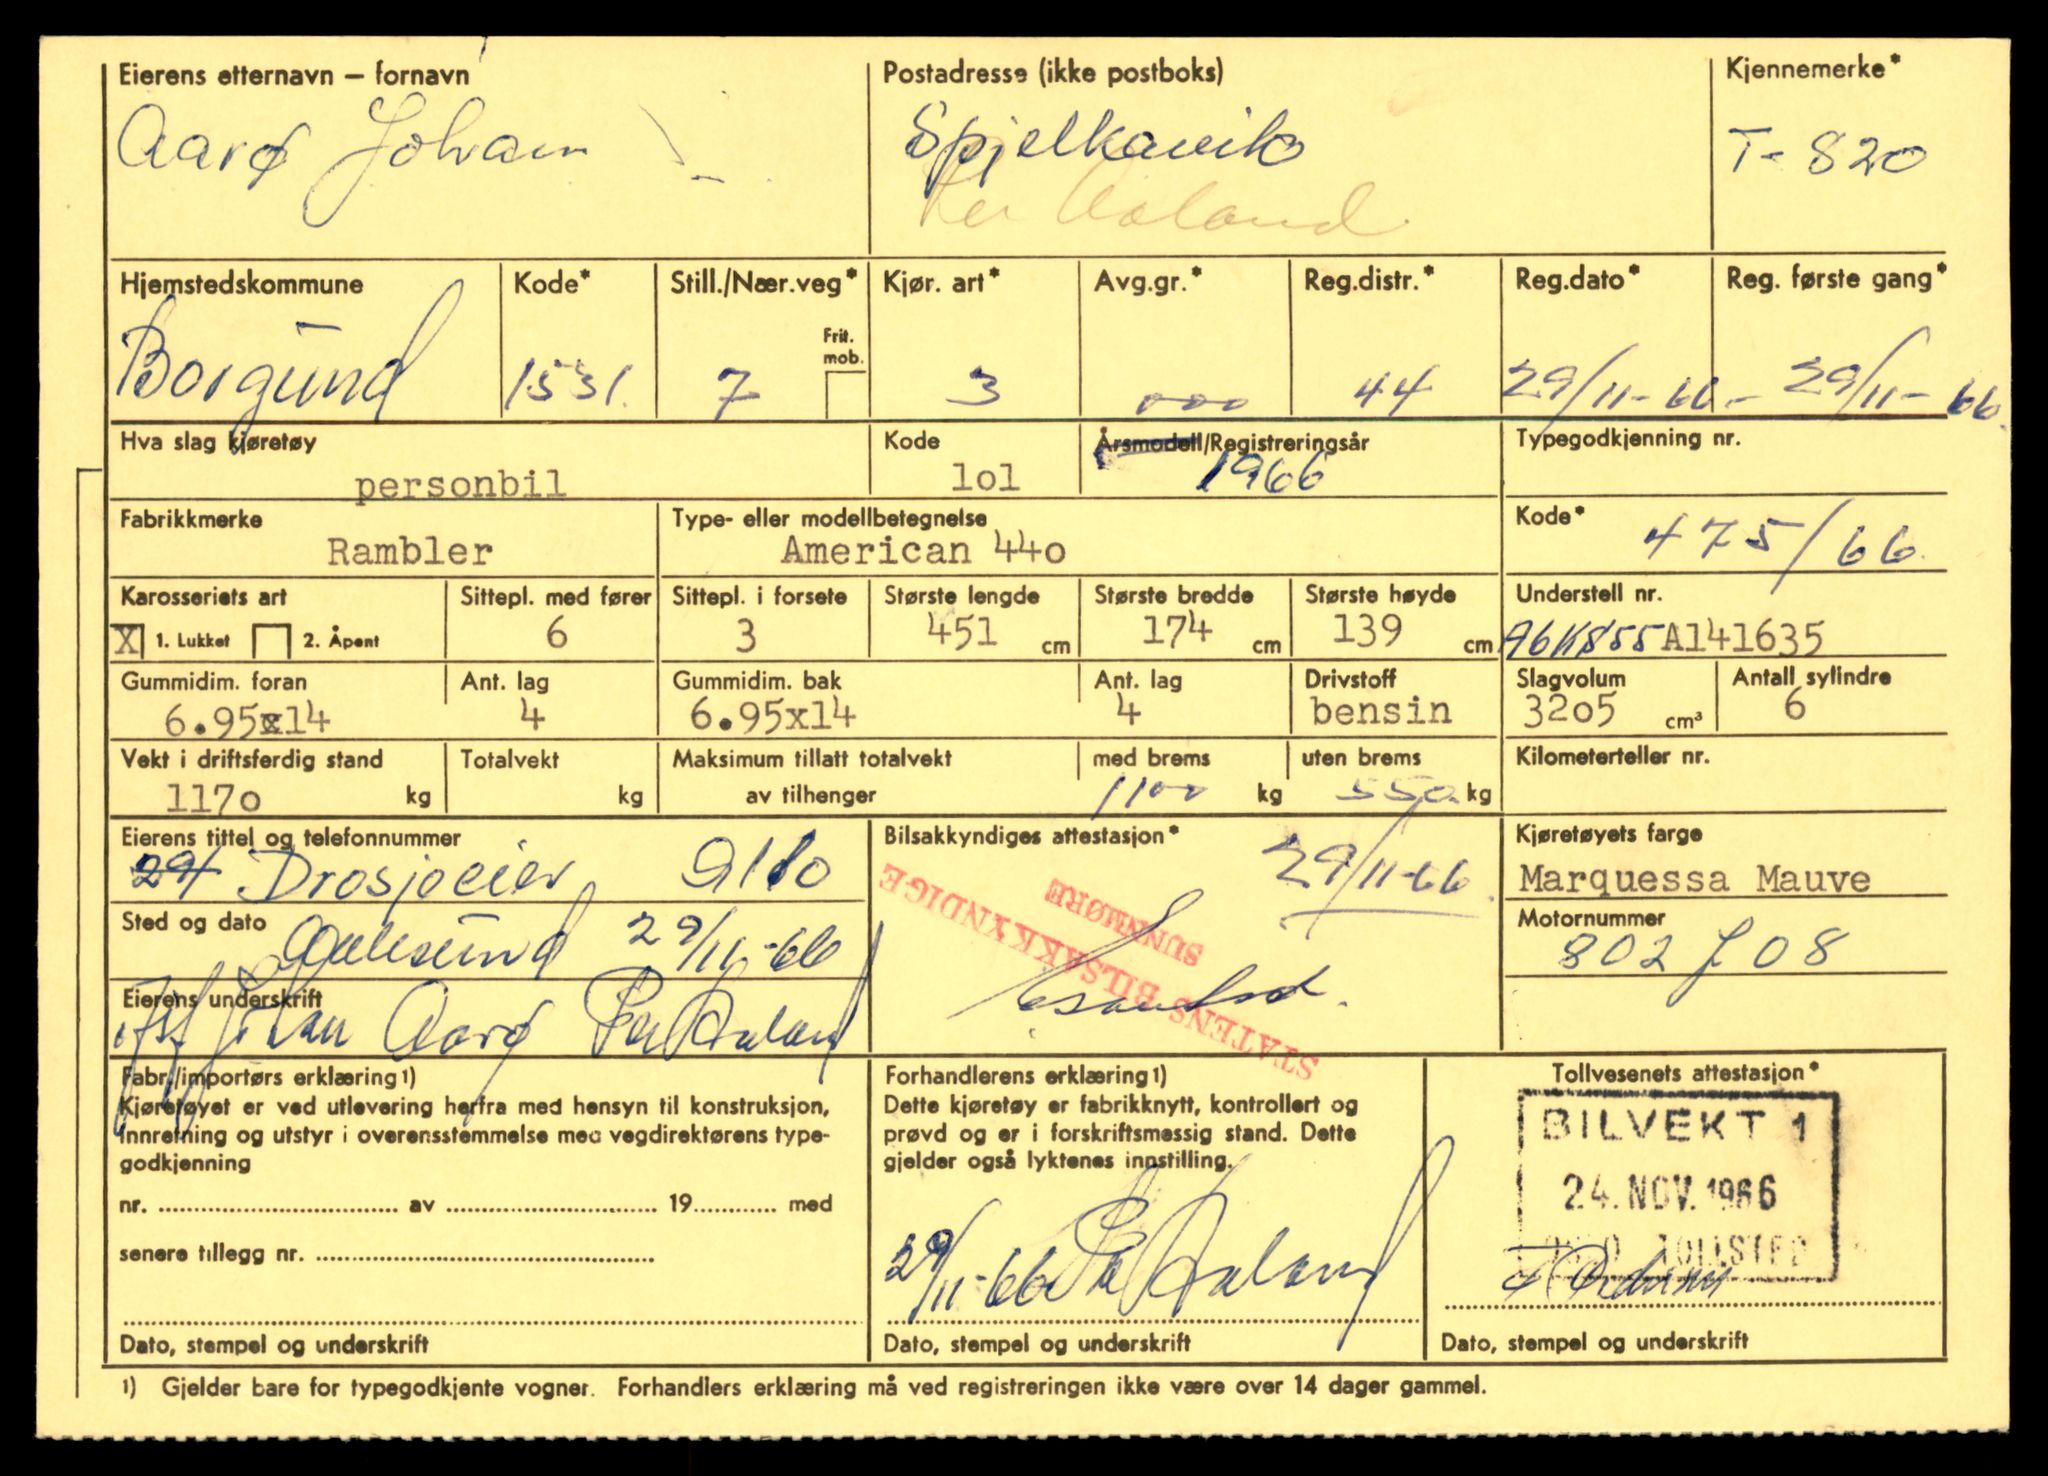 Eierens etternavn – fornavn Postadresse (ikke postboks) Kjennemerke*
Aarø Johan Spjelkavik T-820
Per Aaland
Hjemstedskommune Kode* Still./Nær.veg* Kjør. art* Avg.gr.* Reg.distr.* Reg.dato* Reg. første gang*
Frit. mob.
Borgund 1531. 7 3 000 44 29/11-66- 29/11-66.
Hva slag kjøretøy Kode Årsmodell/Registreringsår Typegodkjenning nr.
personbil lol 1966
Fabrikkmerke Type- eller modellbetegnelse Kode*
Rambler American 44o 475/66
Karosseriets art Sittepl. med fører Sittepl. i forsete Største lengde Største bredde Største høyde Understell nr.
X 1. Lukket 2. Åpent 6 3 451 cm 174 cm 139 cm A6K855 A141635
Gummidim. foran Ant. lag Gummidim. bak Ant. lag Drivstoff Slagvolum Antall sylindre
6.95x14 4 6.95x14 4 bensin 32o5 cm³ 6
Vekt i driftsferdig stand Totalvekt Maksimum tillatt totalvekt med brems uten brems Kilometerteller nr.
117o kg kg av tilhenger 1100 kg 550. kg
Eierens tittel og telefonnummer Bilsakkyndiges attestasjon* Kjøretøyets farge
24 Drosjeeier 9110 29/11-66. Marquessa Mauve
STATENS BILSAKKYNDIGE
SUNNMØRE
Sted og dato Motornummer
Aalesund 29/11-66 802 J 08
Eierens underskrift
Johan Aarø Per Aaland
Fabr./importørs erklæring 1) Forhandlerens erklæring 1) Tollvesenets attestasjon*
Kjøretøyet er ved utlevering herfra med hensyn til konstruksjon,
innretning og utstyr i overensstemmelse med vegdirektørens type-
godkjenning
nr. av 19 med
senere tillegg nr.
Dette kjøretøy er fabrikknytt, kontrollert og
prøvd og er i forskriftsmessig stand. Dette
gjelder også lyktenes innstilling.
29/11-66 Per Aaland
BILVEKT 1
24. NOV. 1966
TOLLSTED
Dato, stempel og underskrift Dato, stempel og underskrift Dato, stempel og underskrift
1) Gjelder bare for typegodkjente vogner. Forhandlers erklæring må ved registreringen ikke være over 14 dager gammel.